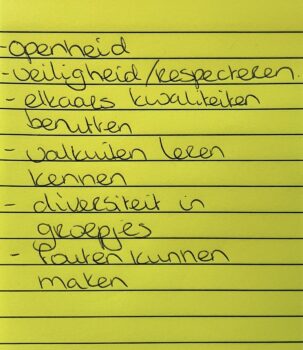 - openheid
- veiligheid/respecteren.
- elkaars kwaliteiten
benutten
- valkuilen leren
kennen
- diversiteit in
groepjes
- fouten kunnen
maken